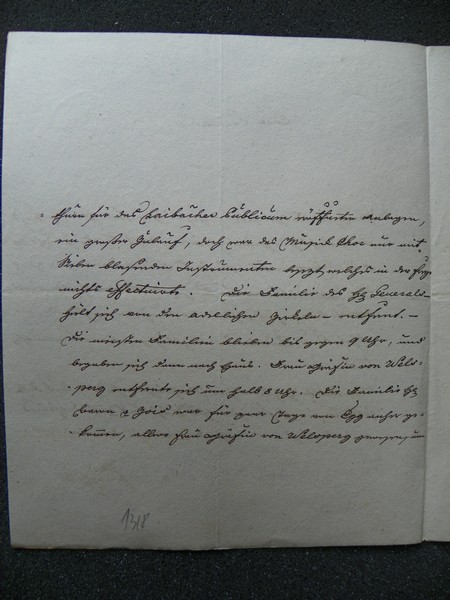 für das Laibacher Publicum errichteten Anlagen,
ein großer Zulauf, doch war das Musick Chor nur mit
sieben blasenden Instrumenten besezt welches in der
nichts effectuirte. Die Familie des H: Generals
hält sich von den adelichen Zirkeln entfernt. –
Die meisten Familien blieben bis gegen 9 Uhr, und
begaben sich dann nach Haus. Frau Gräfin von Wels-
-perg entfernte sich um halb 8 Uhr. Die Familie H:
Baron Zois war für zwei Tage von Egg anher ge-
-kommen, allwo Frau Gräfin von Welsperg gewesen, um
1318